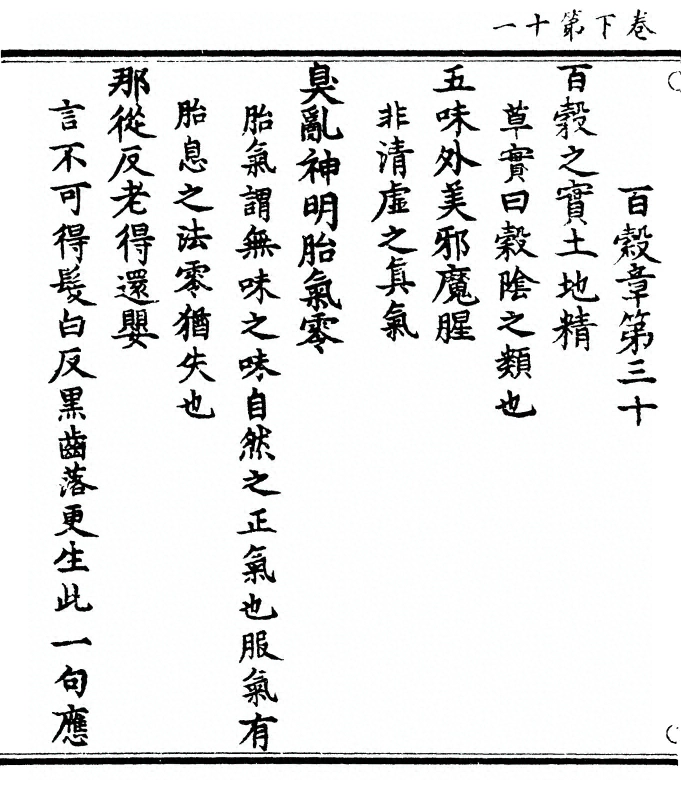 卷下第十一
百穀章第三十
百穀之實土地精
草實曰穀陰之類也
五味外美邪魔腥
非清虛之真氣
臭亂神明胎氣零
胎氣謂無味之味自然之正氣也服氣有
胎息之法零猶失也
那從反老得還嬰
言不可得髮白反黑齒落更生此一句應